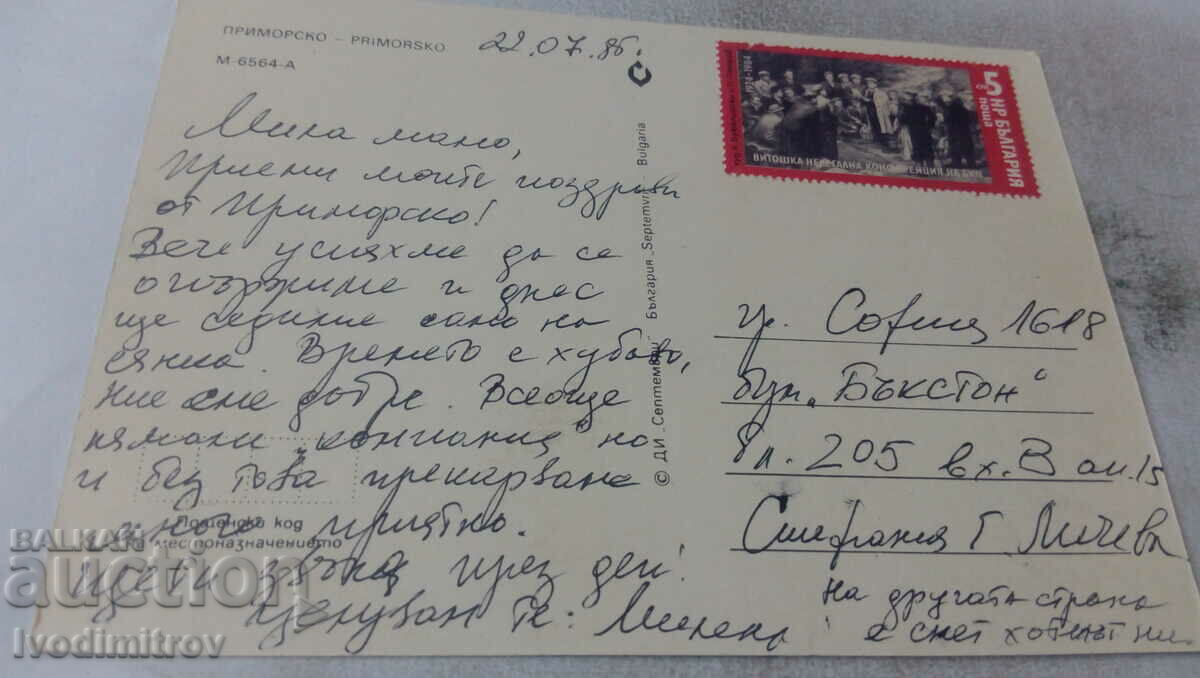 ПРИМОРСКО – PRIMORSKO
М-6564-А
22.07.86.
Мила мамо,
Приеми моите поздрави
от Приморско!
Вече успяхме да се
и днес
ще седиме само на
сянка. Времето е хубаво,
ние сме добре. Всеобще
нямаме „компания" но
и без това прекарваме
много приятно.
Пощенски код
на местоназначението
през ден!
Целувам те: Милена
© ДИ „Септември" България „Septemvri" Bulgaria
1924-1984
5 ст
НР БЪЛГАРИЯ
поща
ВИТОШКА НЕЛЕГАЛНА КОНФЕРЕНЦИЯ НА БКП
гр. София 1618
бул. „Бъкстон"
бл. 205 вх. В ап. 15
Стефания Г. Мичева
на другата страна
е снет хотелът ни
BALKAN
auction
Ivodimitrov